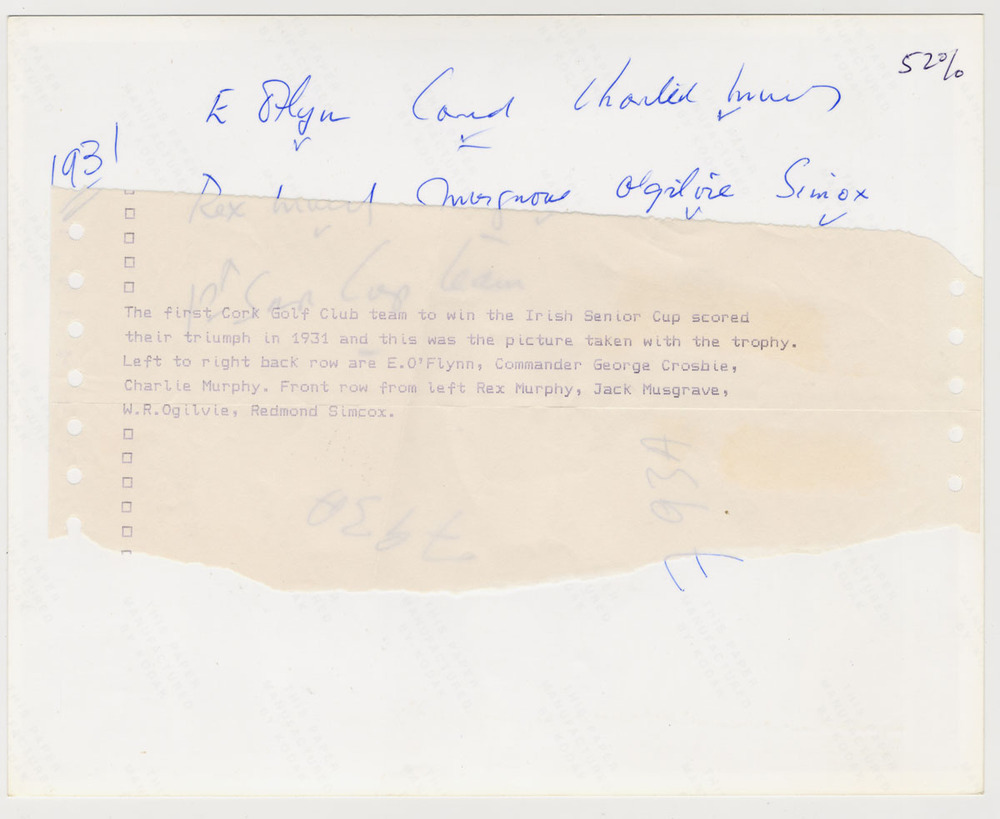 52%
E O'Flynn Charlie
1931
Rex Ogilvie Simcox
1st Sen Cup team
The first Cork Golf Club team to win the Irish Senior Cup scored
their triumph in 1931 and this was the picture taken with the trophy.
Left to right back row are E.O'Flynn, Commander George Crosbie,
Charlie Murphy. Front row from left Rex Murphy, Jack Musgrave,
W.R.Ogilvie, Redmond Simcox.